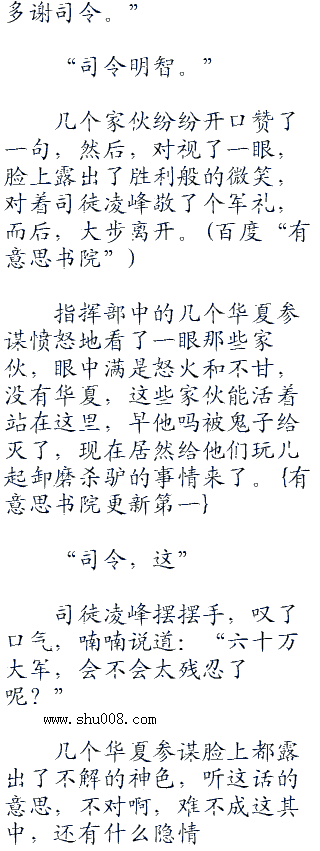 多谢司令。”
“司令明智。”
几个家伙纷纷开口赞了
一句，然后，对视了一眼，
脸上露出了胜利般的微笑，
对着司徒凌峰敬了个军礼，
而后，大步离开。（百度“有
意思书院”）
指挥部中的几个华夏参
谋愤怒地看了一眼那些家
伙，眼中满是怒火和不甘，
没有华夏，这些家伙能活着
站在这里，早他吗被鬼子给
灭了，现在居然给他们玩儿
起卸磨杀驴的事情来了。{有
意思书院更新第一}
“司令，这”
司徒凌峰摆摆手，叹了
口气，喃喃说道：“六十万
大军，会不会太残忍了
呢？”
www.shu008.com
几个华夏参谋脸上都露
出了不解的神色，听这话的
意思，不对啊，难不成这其
中，还有什么隐情